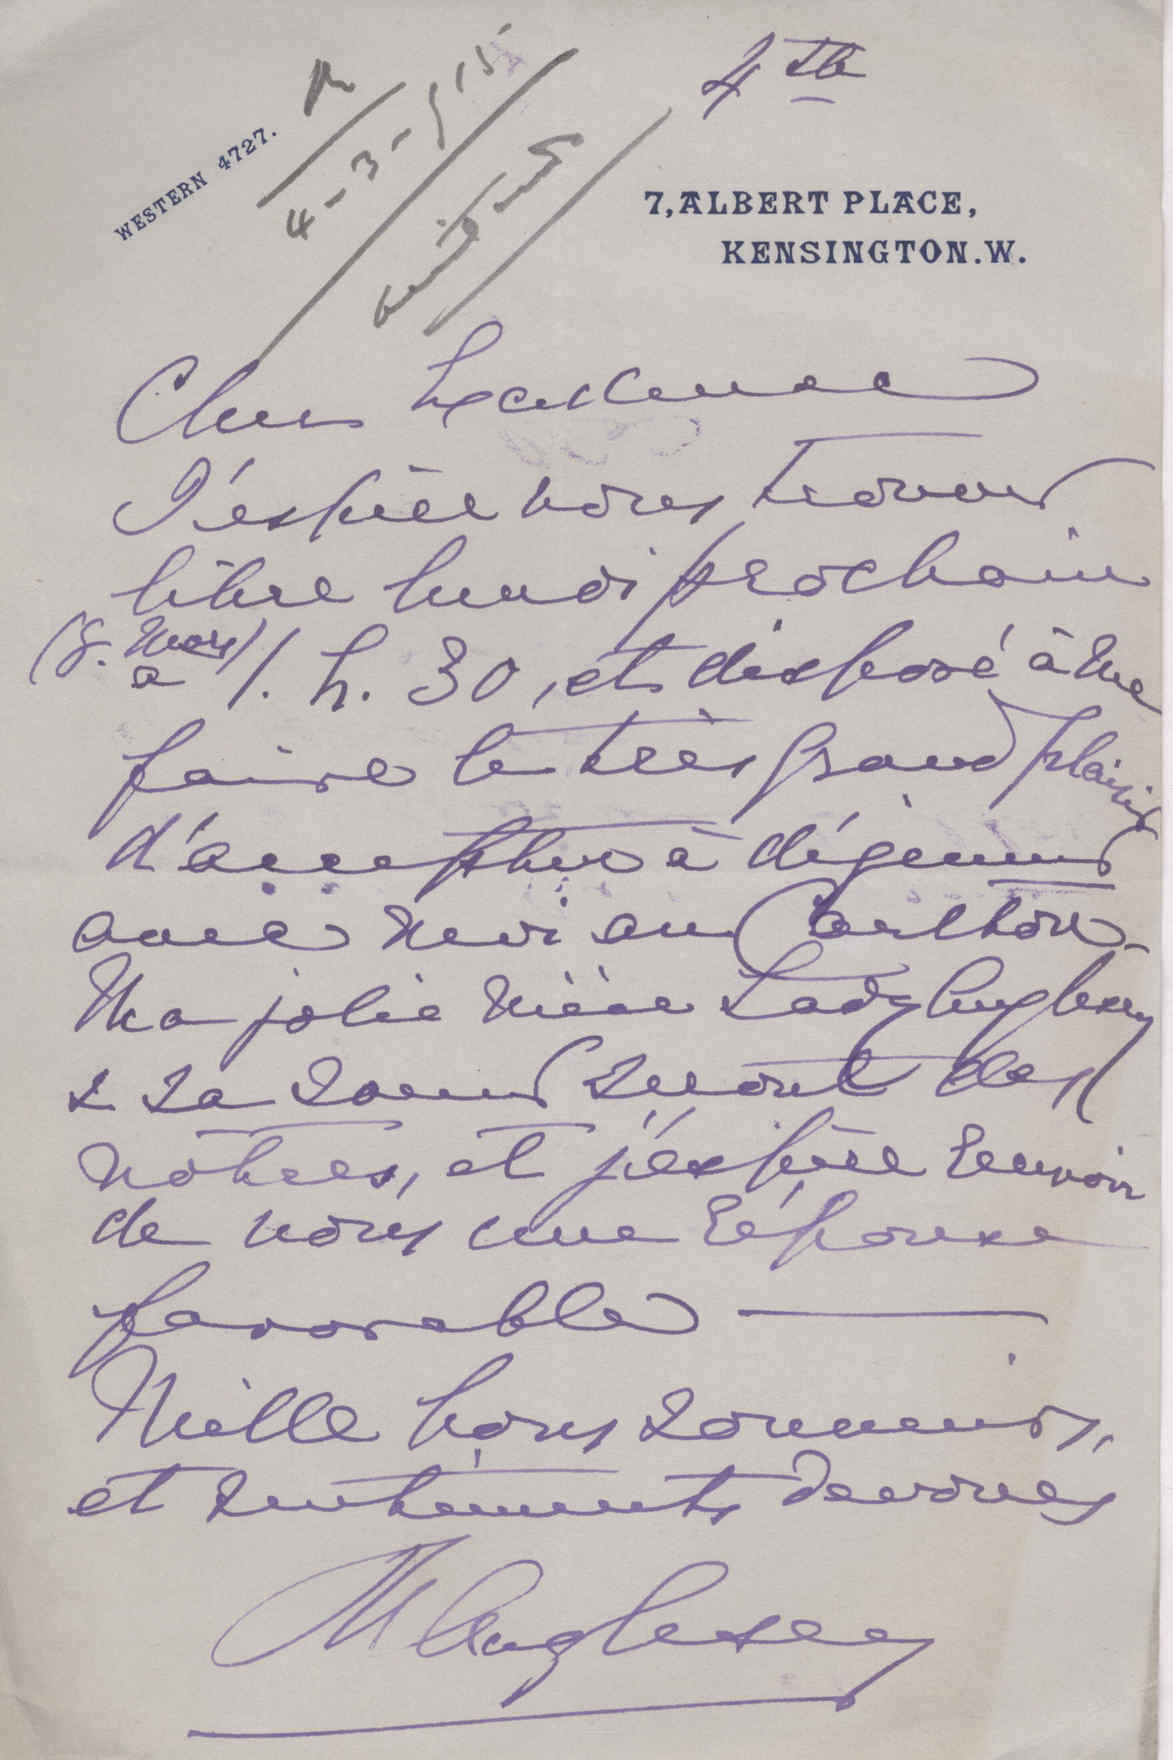 4th
WESTERN 4727.
R
4-3-/15
7, ALBERT PLACE,
KENSINGTON. W.
Cher
J'espère vous trouver
libre lundi prochain
(8. Mars)
à 1. h. 30, et disposé à me
faire le très grand plaisir
d'accepter à déjeuner
avec moi au Carlton.
Ma jolie nièce Lady Anglesey
& sa soeur seront des
nôtres, et j'espère recevoir
de vous une réponse
favorable —
Mille bons souvenirs,
et sentiments dévoués
M Anglesey